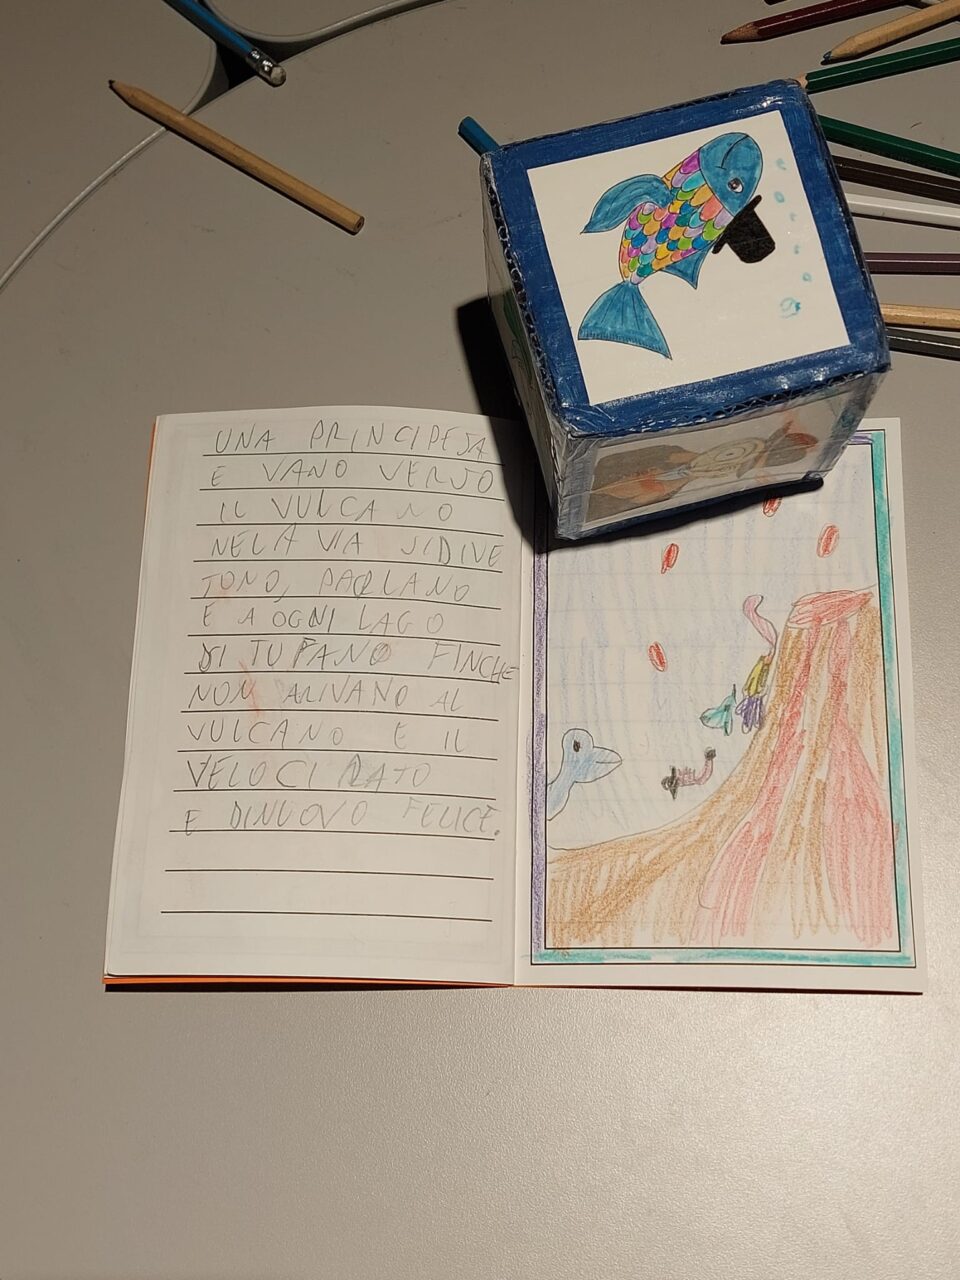 UNA PRINCIPESA
E VANO VERSO
IL VULCANO
NELA VIA SIDIVE
TONO, PARLANO
E A OGNI LAGO
SI TUFANO FINCHE
NON ARIVANO AL
VULCANO E IL
VELOCI RATO
E DINUOVO FELICE.